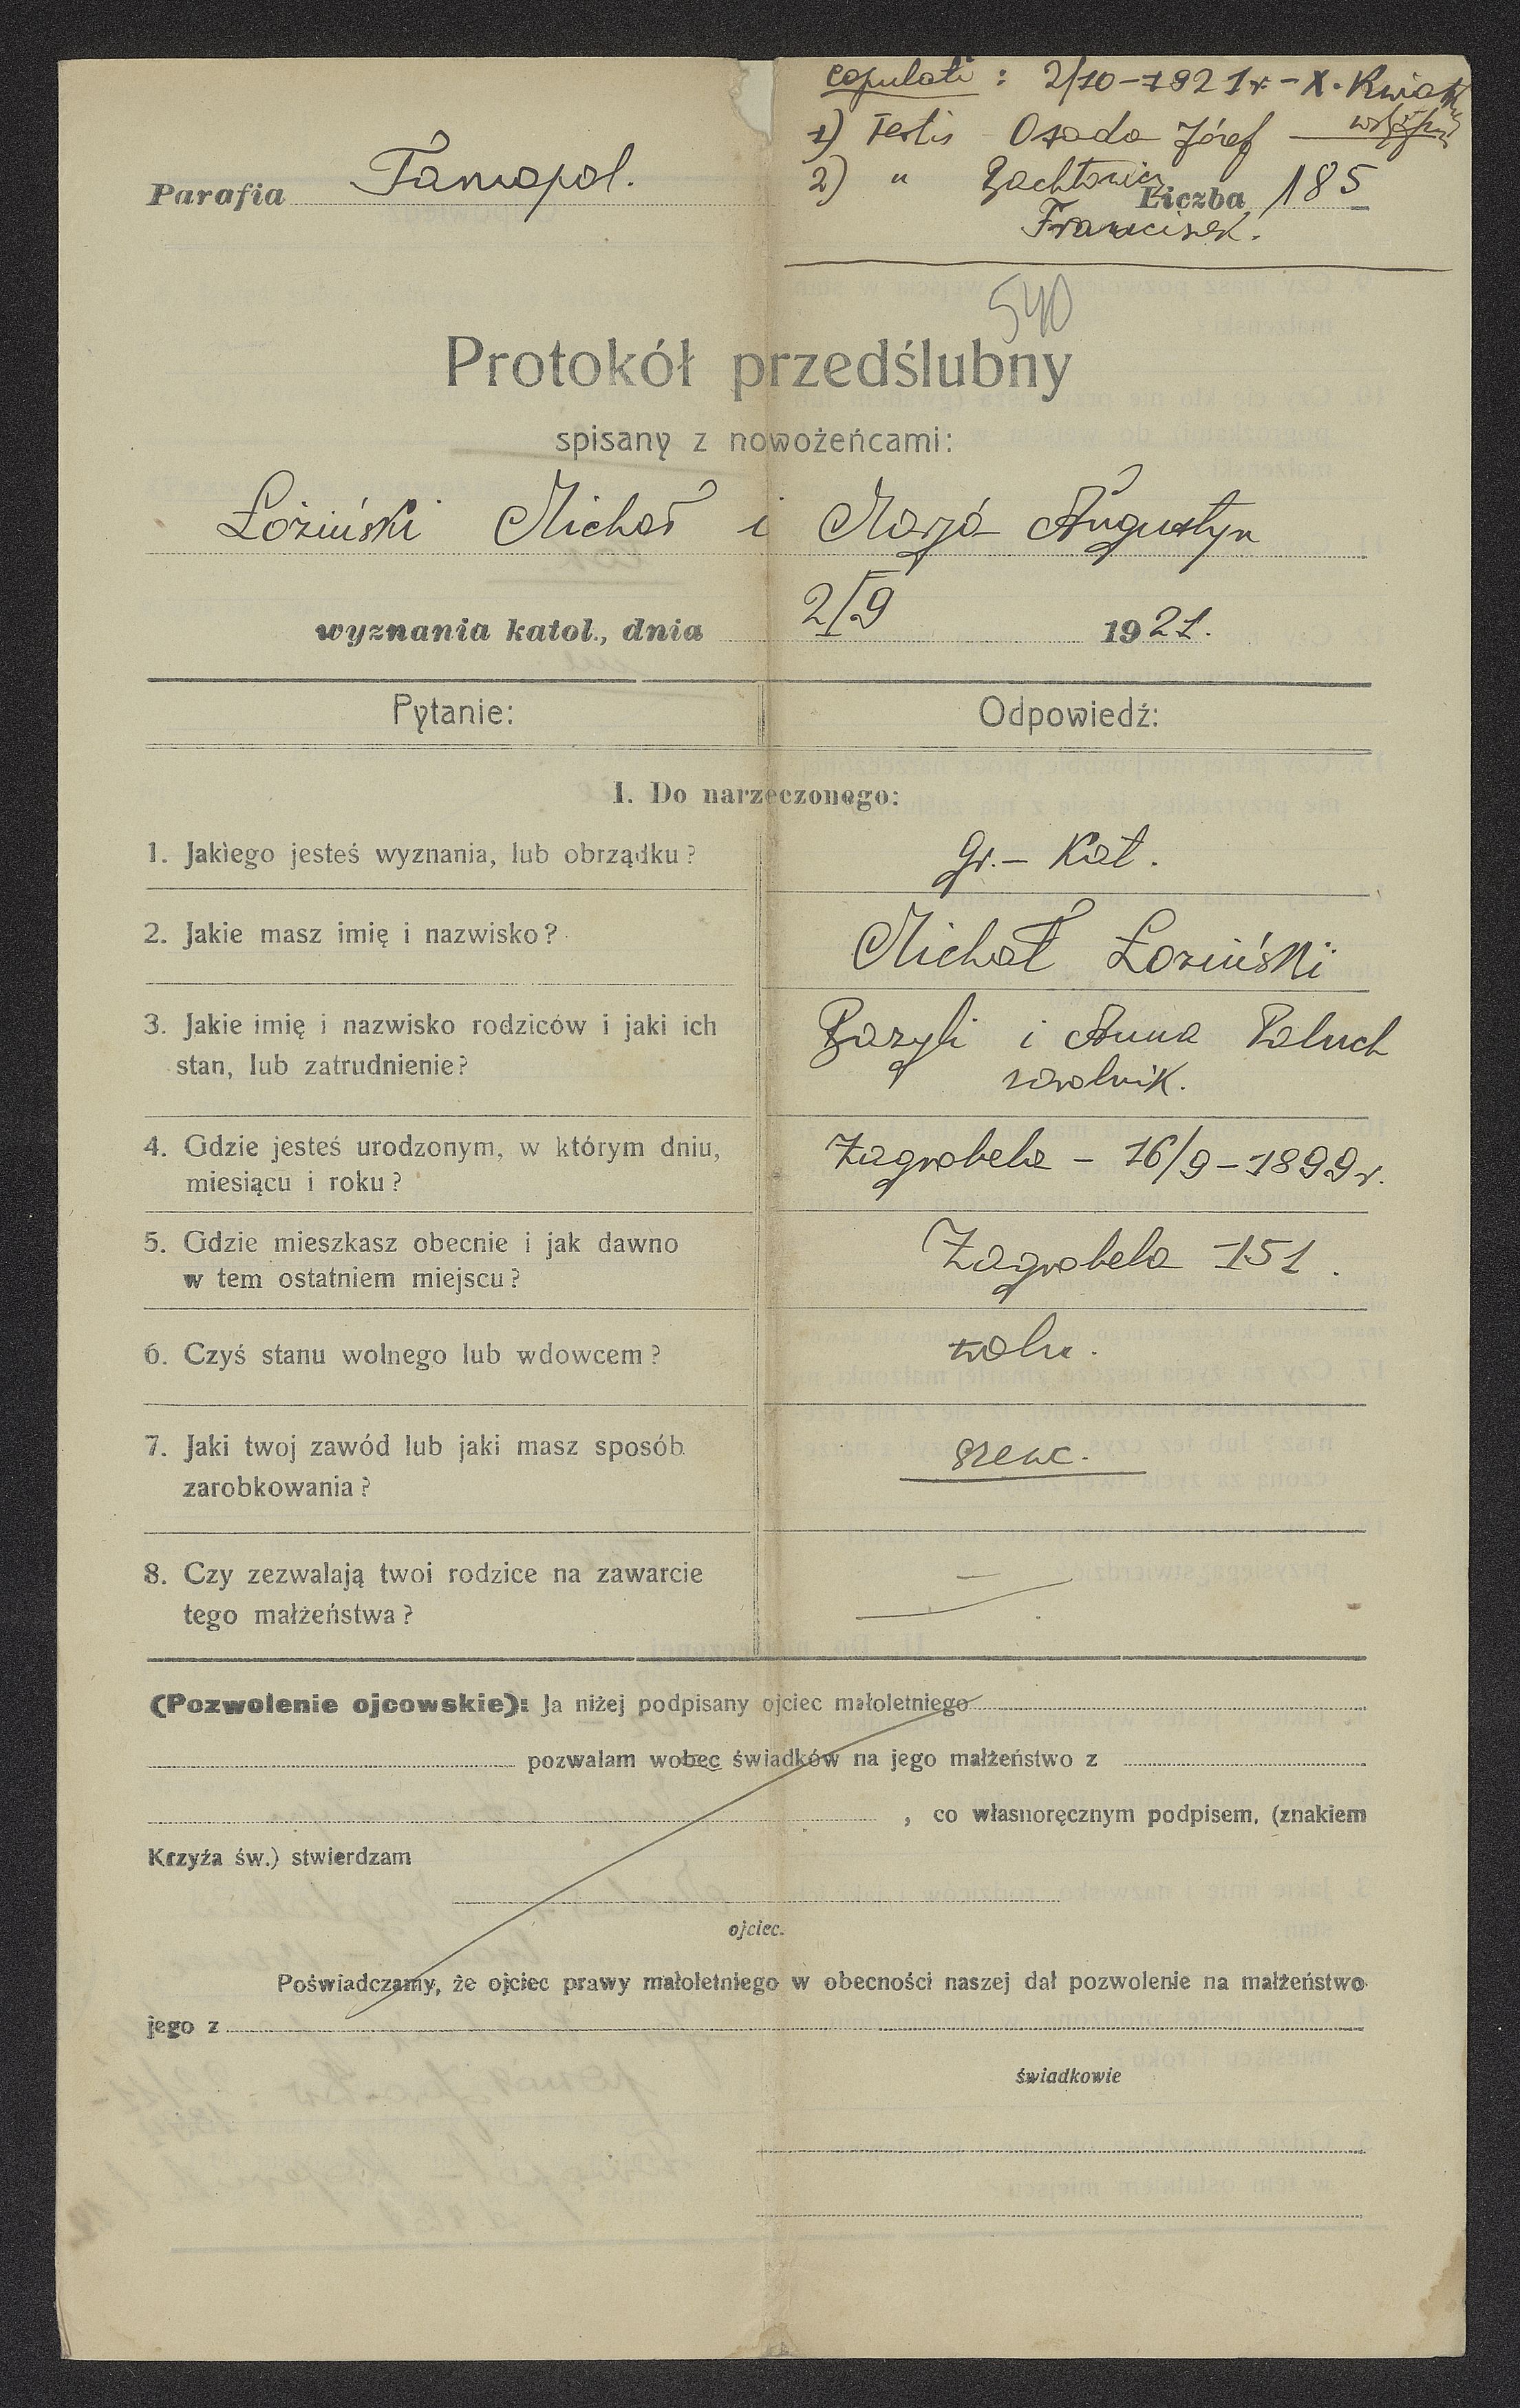 copulati : 2/10-1921r - X. Kwiatk
1) Testis - Osada Józef
2) " Franciszek.
Parafia Tarnopol. Liczba 185
540
Protokół przedślubny
spisany z nowożeńcami:
Łoziński Michał i Marja Augustyn
wyznania katol., dnia 2/9 1921.
Pytanie: Odpowiedź:
I. Do narzeczonego:
1. Jakiego jesteś wyznania, lub obrządku? gr.- kat.
2. Jakie masz imię i nazwisko? Michał Łoziński
3. Jakie imię i nazwisko rodziców i jaki ich Bazyli i Anna Paluch
stan, lub zatrudnienie? rolnik.
4. Gdzie jesteś urodzonym, w którym dniu, Zagrobela - 16/9-1899r.
miesiącu i roku?
5. Gdzie mieszkasz obecnie i jak dawno Zagrobela 151.
w tem ostatniem miejscu?
6. Czyś stanu wolnego lub wdowcem? woln.
7. Jaki twoj zawód lub jaki masz sposób szewc.
zarobkowania?
8. Czy zezwalają twoi rodzice na zawarcie
tego małżeństwa?
(Pozwolenie ojcowskie): Ja niżej podpisany ojciec małoletniego
pozwalam wobec świadków na jego małżeństwo z
, co własnoręcznym podpisem, (znakiem
Krzyża św.) stwierdzam
ojciec.
Poświadczamy, że ojciec prawy małoletniego w obecności naszej dał pozwolenie na małżeństwo
jego z
świadkowie